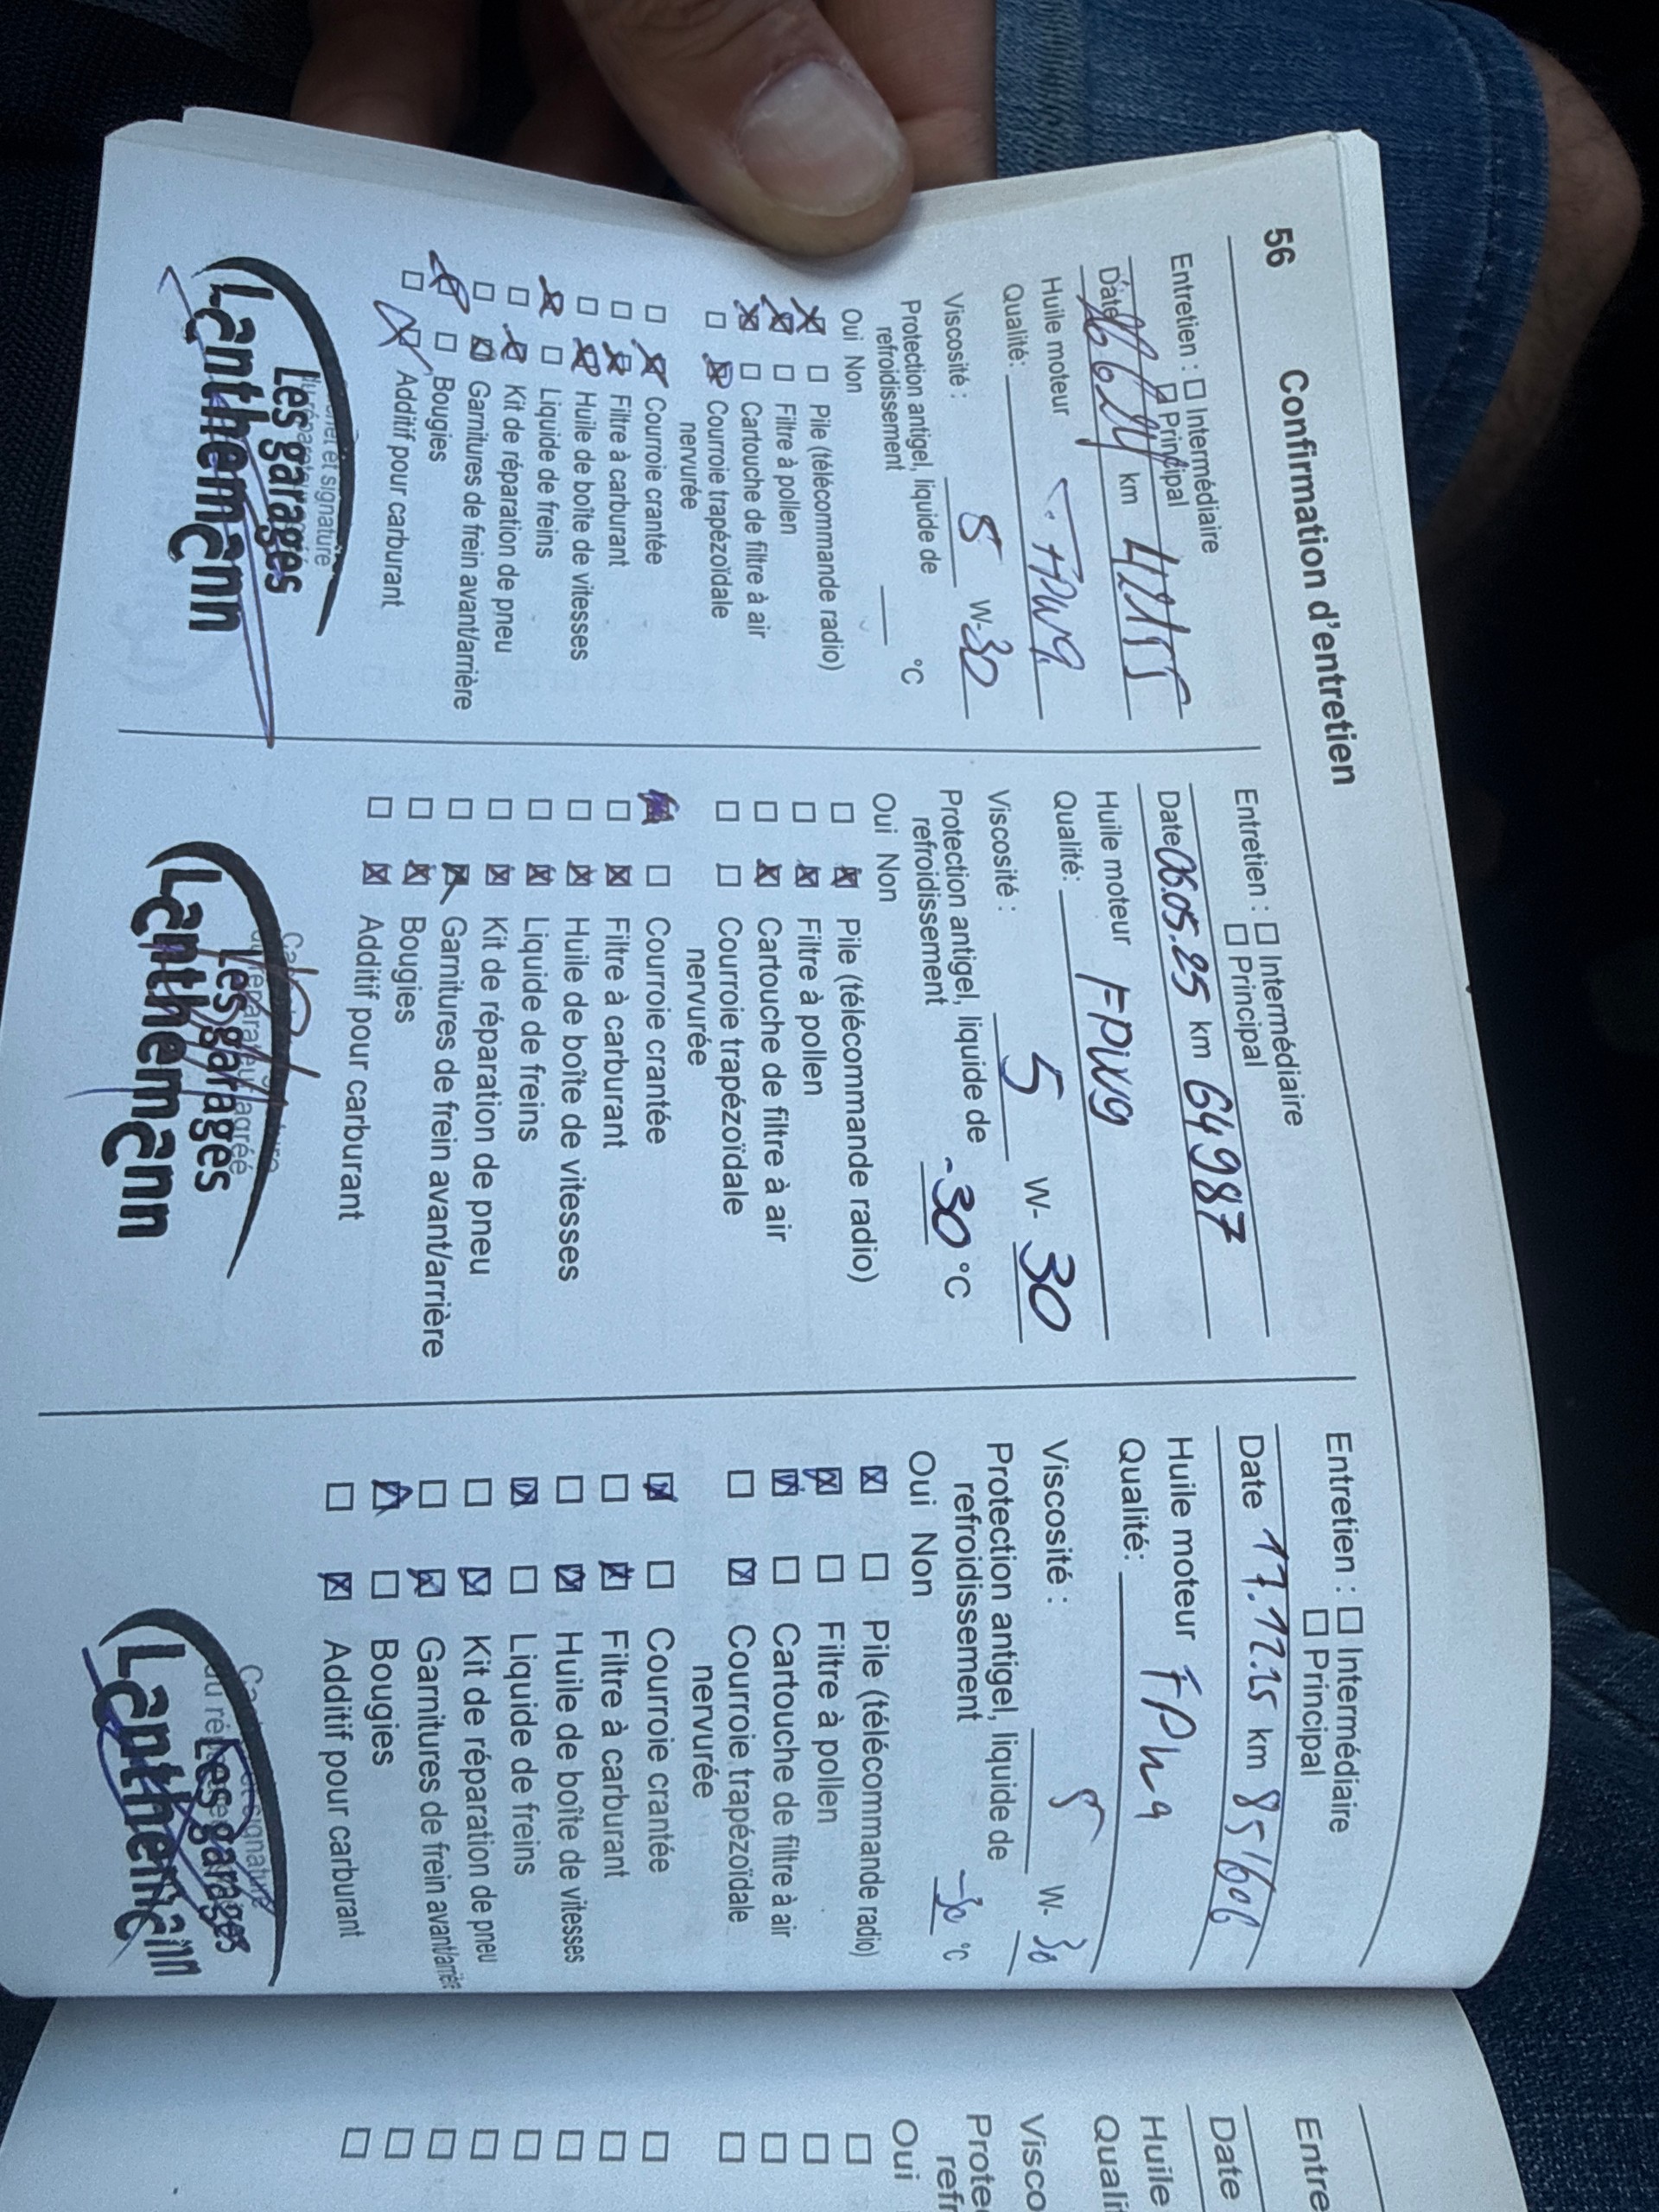 56 Confirmation d'entretien
Entretien : ☐ Intermédiaire
☐ Principal
Date km
Huile moteur
Qualité:
Viscosité : 5 W-30
Protection antigel, liquide de
refroidissement °C
Oui Non
☒ ☐ Pile (télécommande radio)
☒ ☐ Filtre à pollen
☒ ☐ Cartouche de filtre à air
☐ ☒ Courroie trapézoïdale
nervurée
☐ ☒ Courroie crantée
☐ ☒ Filtre à carburant
☐ ☒ Huile de boîte de vitesses
☒ ☐ Liquide de freins
☐ ☒ Kit de réparation de pneu
☐ ☒ Garnitures de frein avant/arrière
☒ ☐ Bougies
☐ ☒ Additif pour carburant
et signature
Les garages
Lanthemann
Entretien : ☐ Intermédiaire
☐ Principal
Date 06.05.25 km 64987
Huile moteur
Qualité: FPW9
Viscosité : 5 W- 30
Protection antigel, liquide de
refroidissement -30 °C
Oui Non
☐ ☒ Pile (télécommande radio)
☐ ☒ Filtre à pollen
☐ ☒ Cartouche de filtre à air
☐ ☐ Courroie trapézoïdale
nervurée
☐ Courroie crantée
☐ ☒ Filtre à carburant
☐ ☒ Huile de boîte de vitesses
☐ ☒ Liquide de freins
☐ ☒ Kit de réparation de pneu
☐ ☒ Garnitures de frein avant/arrière
☐ ☒ Bougies
☐ ☒ Additif pour carburant
du réparateur agréé
Les garages
Lanthemann
Entretien : ☐ Intermédiaire
☐ Principal
Date 17.12.25 km 85606
Huile moteur
Qualité:
Viscosité : 5 W- 30
Protection antigel, liquide de
refroidissement -30 °C
Oui Non
☒ ☐ Pile (télécommande radio)
☒ ☐ Filtre à pollen
☒ ☐ Cartouche de filtre à air
☐ ☒ Courroie trapézoïdale
nervurée
☒ ☐ Courroie crantée
☐ ☒ Filtre à carburant
☐ ☒ Huile de boîte de vitesses
☒ ☐ Liquide de freins
☐ ☒ Kit de réparation de pneu
☐ ☒ Garnitures de frein avant/arrière
☒ ☐ Bougies
☐ ☒ Additif pour carburant
signature
Les garages
Lanthemann
Entre
Date
Huile
Quali
Visco
Prote
refr
Oui